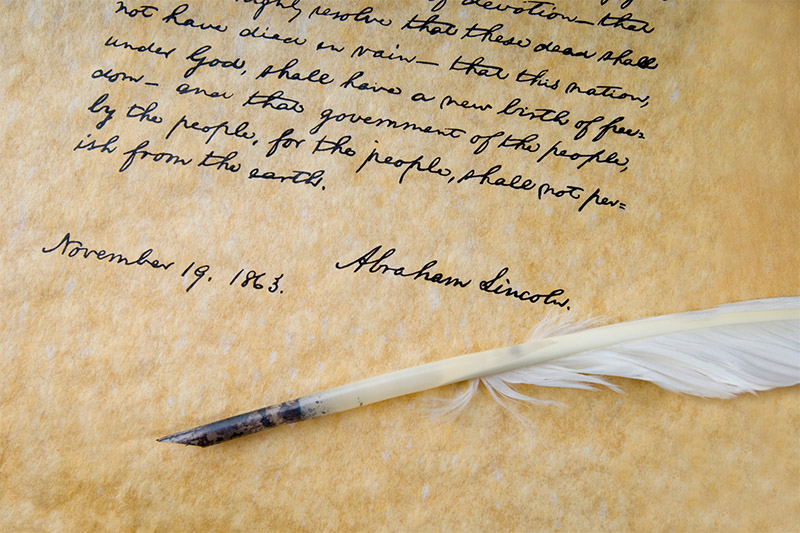 of devotion—that
resolve that these dead shall
not have died in vain—that this nation,
under God, shall have a new birth of free=
dom—and that government of the people,
by the people, for the people, shall not per=
ish from the earth.
November 19, 1863.
Abraham Lincoln.